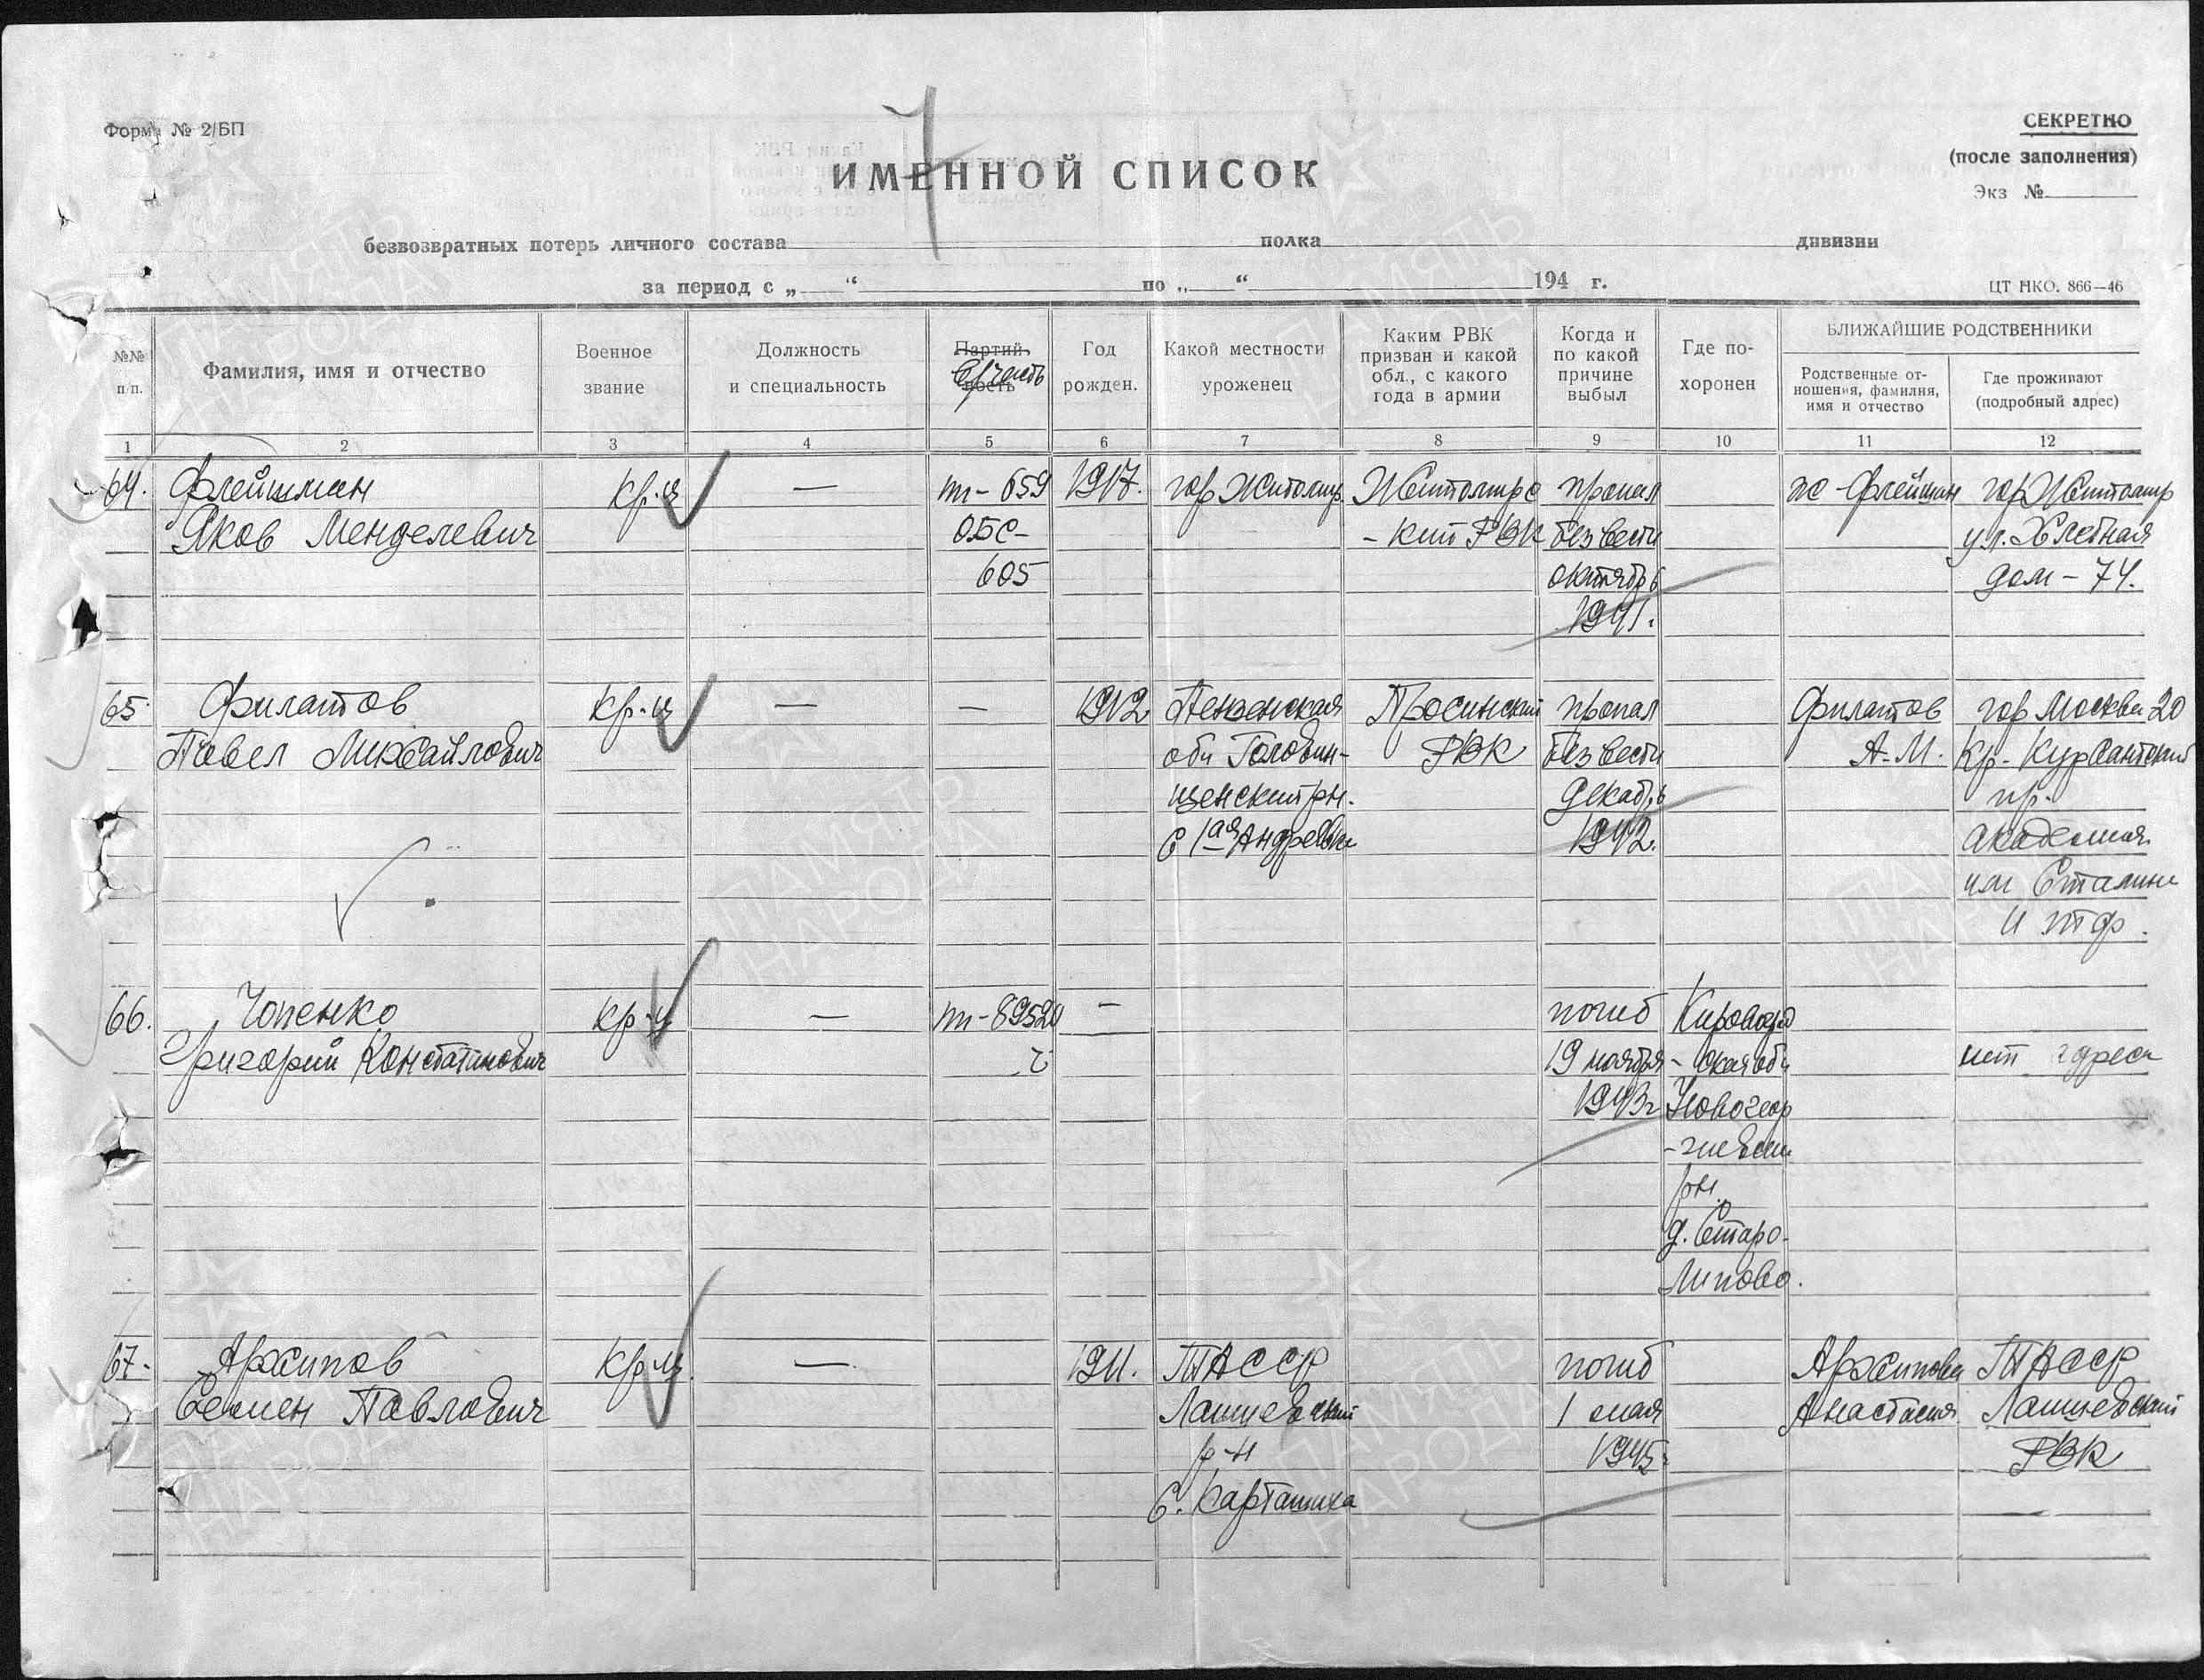 Форма № 2/БП
7
СЕКРЕТНО
(после заполнения)
Экз №
ИМЕННОЙ СПИСОК
безвозвратных потерь личного состава полка дивизии
за период с „ “ по „ “ 194 г.
ЦТ НКО. 866—46
№№
п/п.
Фамилия, имя и отчество
Военное
звание
Должность
и специальность
Партий-
ность
В/часть
Год
рожден.
Какой местности
уроженец
Каким РВК
призван и какой
обл., с какого
года в армии
Когда и
по какой
причине
выбыл
Где по-
хоронен
БЛИЖАЙШИЕ РОДСТВЕННИКИ
Родственные от-
ношения, фамилия,
имя и отчество
Где проживают
(подробный адрес)
1 2 3 4 5 6 7 8 9 10 11 12
64. Флейшман кр-ц — пп-659 1917. гор Житомир Житомирс пропал ж-Флейшман гор Житомир
Яков Менделевич ОБС- -кий РВК без вести ул. Хлебная
605 октябрь дом-74.
1941.
65. Филатов кр-ц — — 1912 Пензенская пропал Филатов гор Москва 20
Павел Михайлович обл Головин- РВК без вести А-М. Кр-Курсантский
щенский рн. декабрь пр.
с 1ая Андреевка 1942. академия
им Сталина
66. Чопенко кр-ц — пп-89520 — погиб Кировогра
Григорий Константинович 19 ноября -ская обл нет адреса
1943г Новогеор
-гиевски
рн.
д. Старо-
Липово.
67. Архипов кр-ц — 1911. ТАССР погиб Архипова ТАССР
Семен Павлович Лаишевский 1 мая Анастасия Лаишевский
р-н 1945. РВК
с. Карташиха
ПАМЯТЬ
НАРОДА